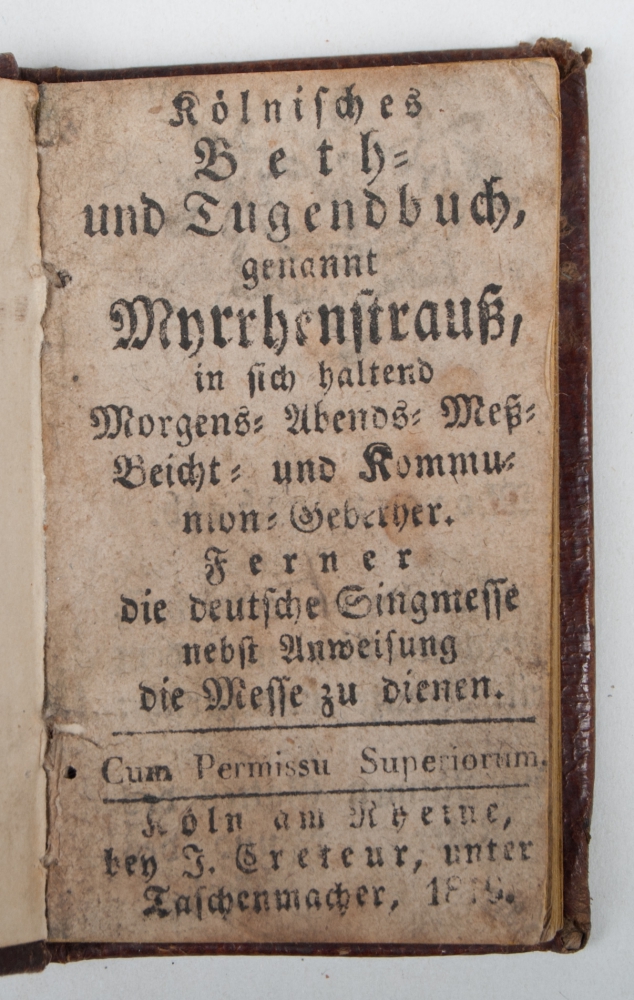 Kölnisches
Beth-
und Tugendbuch,
genannt
Myrrhenstrauß,
in sich haltend
Morgens- Abends- Meß-
Beicht- und Kommu-
nion-Gebether.
Ferner
die deutsche Singmesse
nebst Anweisung
die Messe zu dienen.
Cum Permissu Superiorum.
Köln am Rheine,
bey J. Creteur, unter
Taschenmacher,